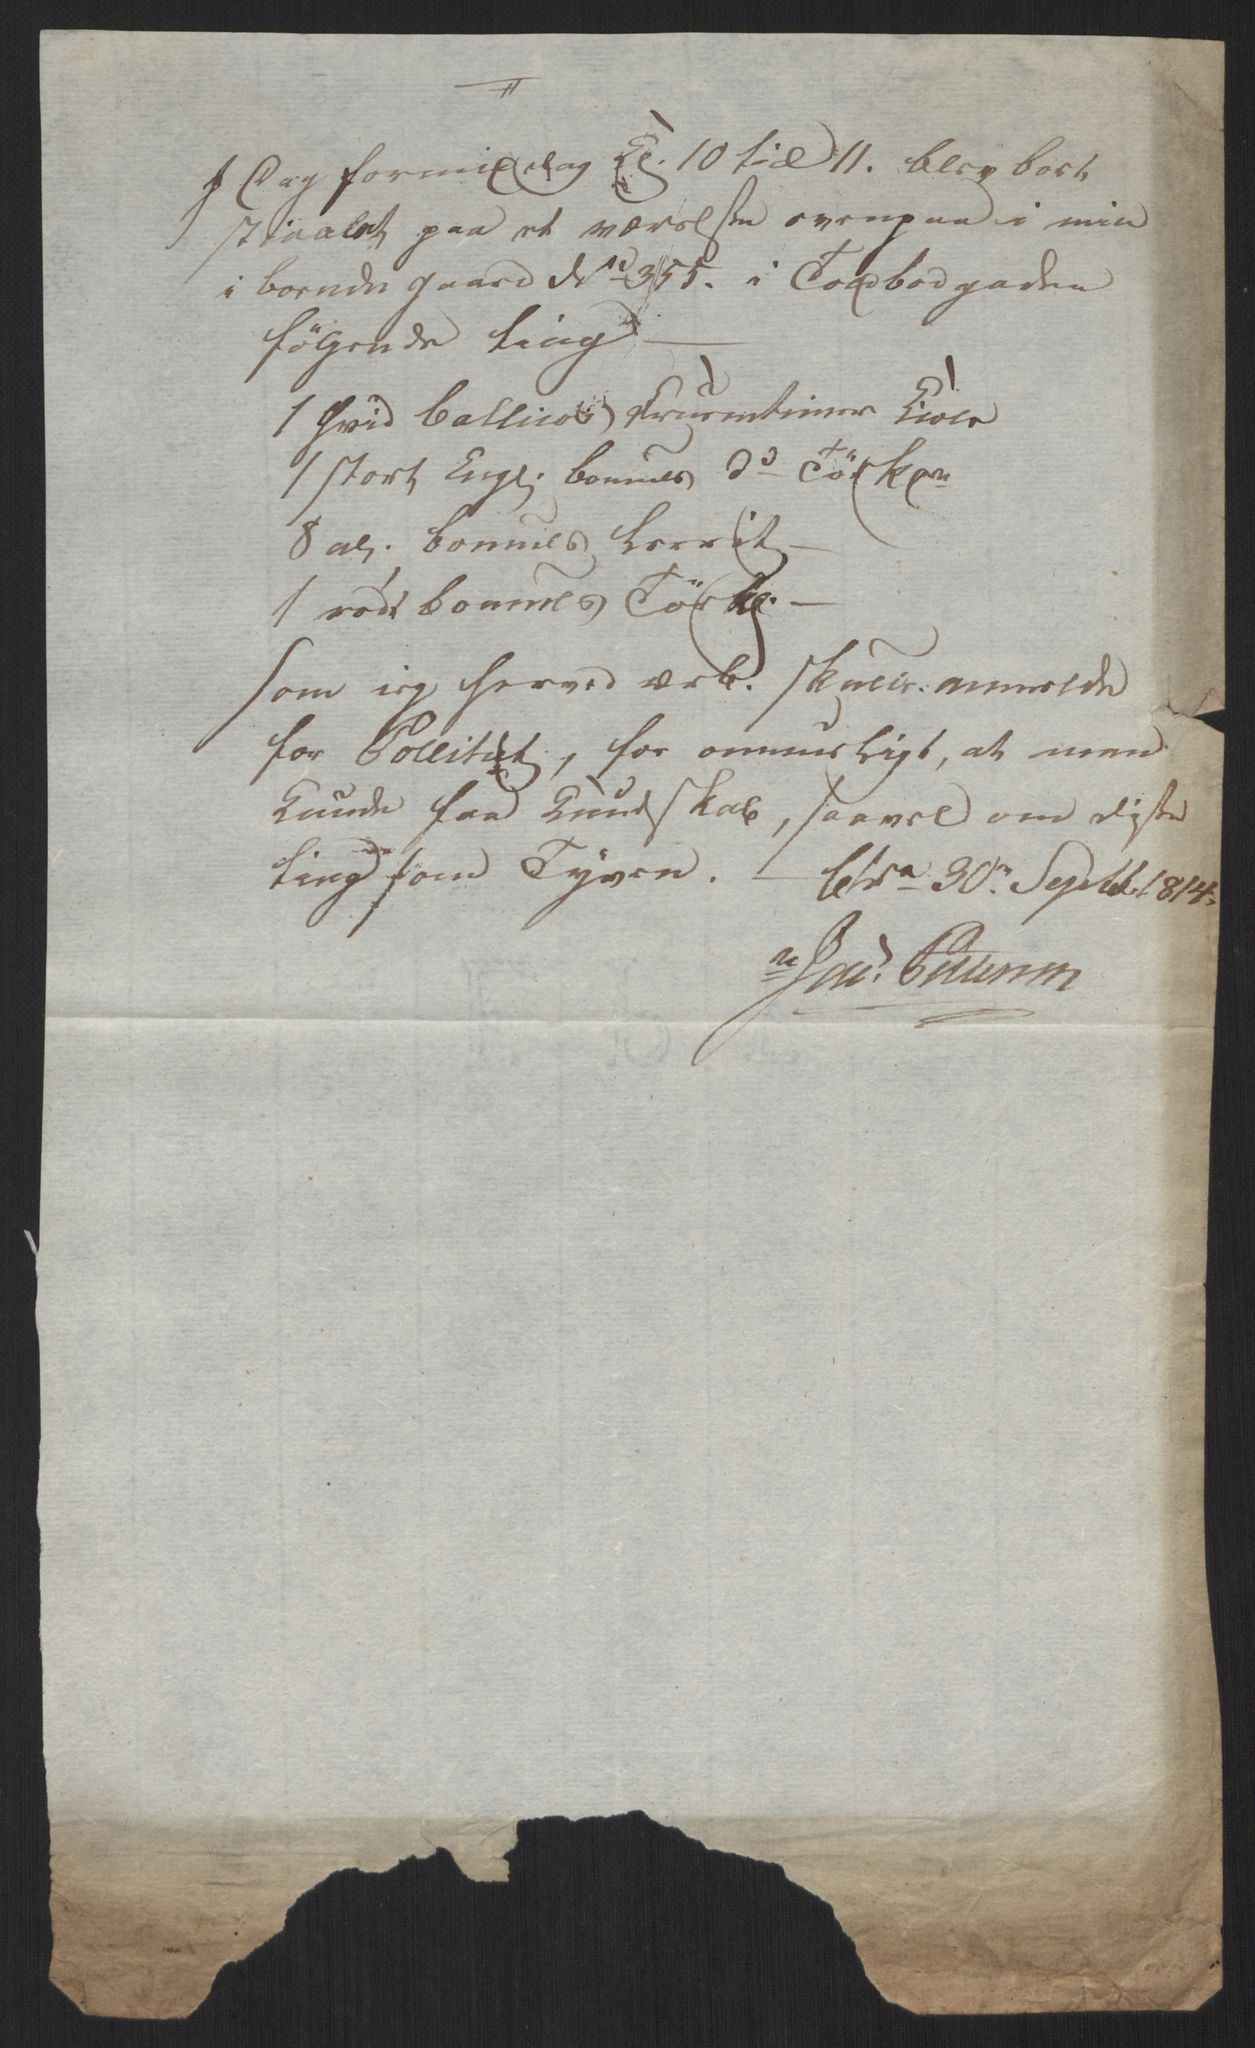 I Dag formiddag Kl. 10 til 11. blev bort
stiaalet paa et værelse ovenpaa i min
i boende gaard No 355. i Toldbodgaden
følgende ting —
1 hvid Callicos Fruentimer Kiole
1 stort Engl: bomuls do Törkl
8 al. bomuls Lerrit —
1 rødt bomuls Törkl. —
som ieg herved ærb. skulle anmelde
for Pollitiet, for om mueligt, at man
kunde faa kundskab, saavel om disse
ting som Tyven. — Chra 30n Septbr 1814.
Jac. Pettersen